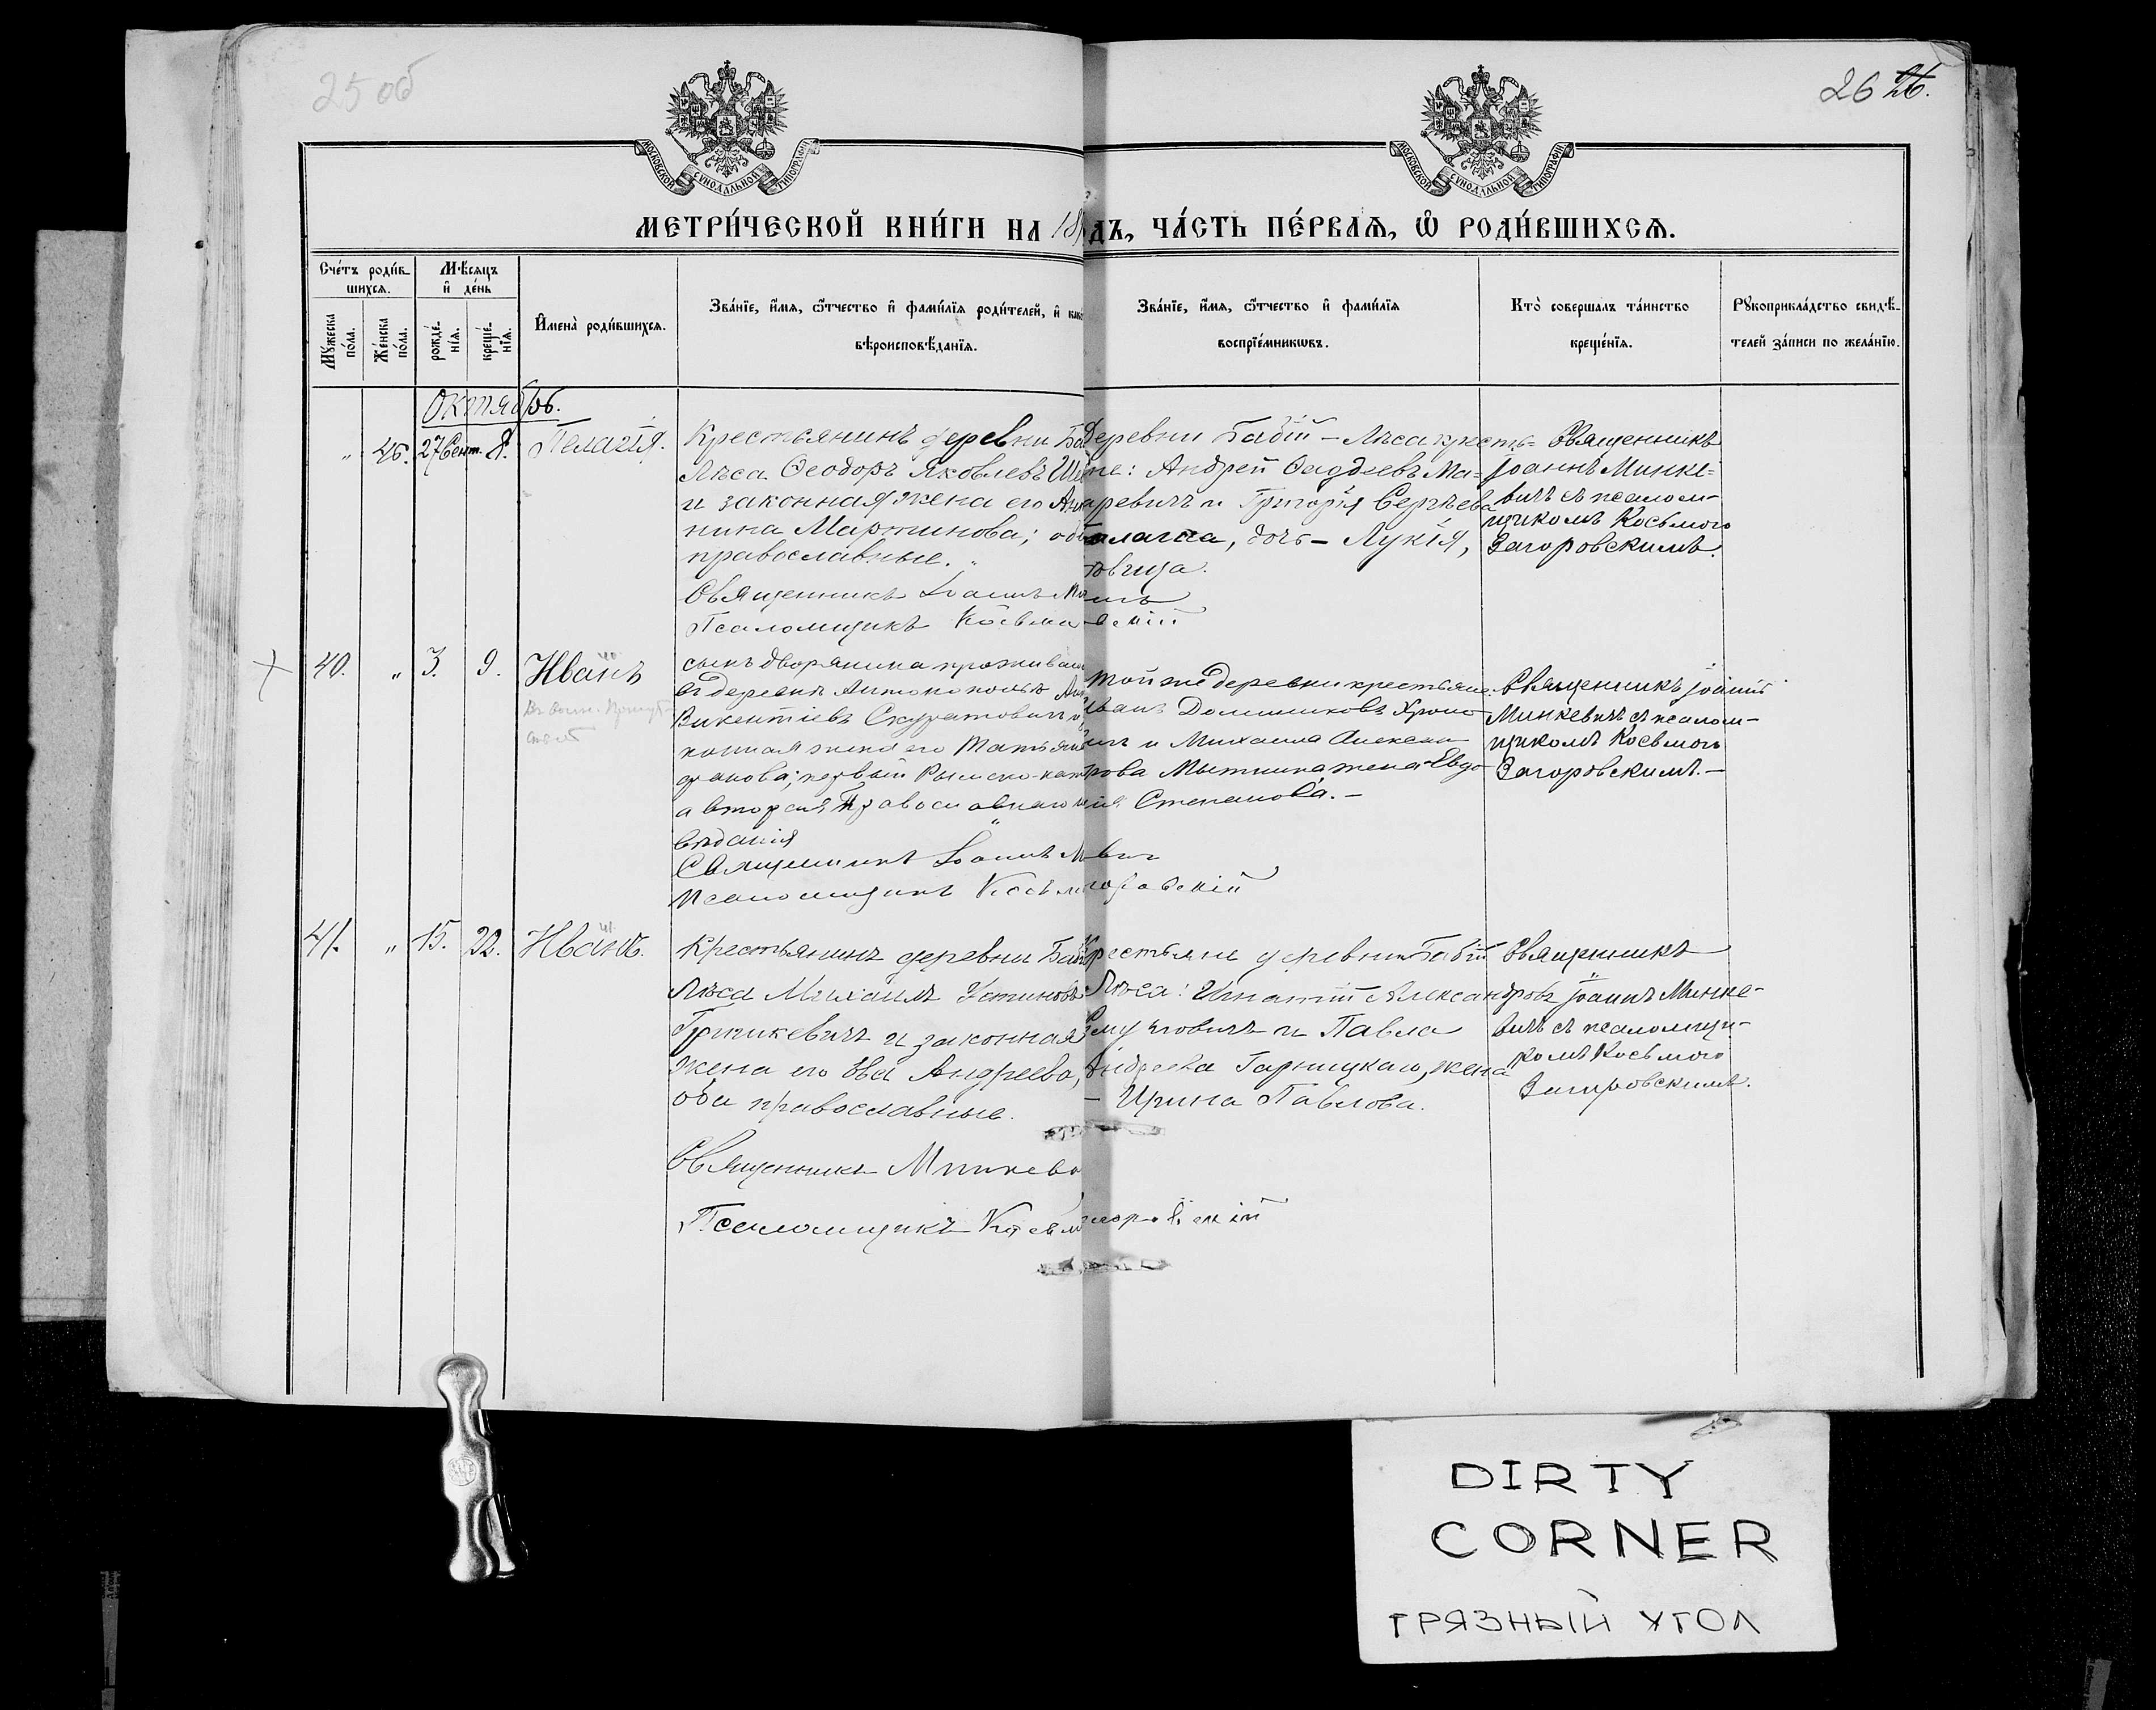 25 об
26 26.
МОСКОВСКОЙ СѴНОДАЛЬНОЙ ТИПОГРАФІИ
МОСКОВСКОЙ СѴНОДАЛЬНОЙ ТИПОГРАФІИ
МЕТРИ́ЧЕСКОЙ КНИ́ГИ НА 18
ДЪ, ЧА́СТЬ ПЕ́РВАѦ, Ѡ҆ РОДИ́ВШИХСѦ.
Сче́тъ роди́в-
шихсѧ.
Мꙋ́жеска по́ла.
Же́нска по́ла.
Мѣ́сѧцъ
и҆ де́нь
рожде́-нїѧ.
креще́-нїѧ.
И҆мена̀ роди́вшихсѧ.
Зва́нїе, и҆́мѧ, ѻ҆́тчество и҆ фами́лїѧ роди́телей, и҆ как
вѣроисповѣ́данїѧ.
Зва́нїе, и҆́мѧ, ѻ҆́тчество и҆ фами́лїѧ
воспрїе́мникѡвъ.
Кто̀ соверша́лъ та́инство
креще́нїѧ.
Рꙋкоприкла́дство свидѣ́-
телей за́писи по жела́нїю.
Октябрь.
" 46. 27 Сент. 8. Пелагія.
Крестьянинъ деревни Ба
Лѣса Ѳеодоръ Яковлевъ
и законная жена его Ан
нина Мартинова; оба
православные.
Священникъ Іоаннъ Ми
Псаломщикъ Косьма
Деревни Бабій-Лѣса кресть=
не: Андрей Ѳаддѣевъ Ма=
аревичъ и Григорія Сергѣева
дочь - Лукія,
вица.
Священникъ
Іоаннъ Минке=
вичъ съ псалом-
щикомъ Косьмою
Загоровскимъ.
40. " 3. 9. Иванъ
40
сынъ дворянина прожива
въ деревнѣ Антонополь Ан
Викентіевъ Скуратовичъ и
конная жена его Татьяна
фанова; первый Римско-кат
а вторая Православнаго и
вѣданія
Священникъ Іоаннъ М
Псаломщикъ Косьм
той же деревни крестьяне
Иванъ Доминиковъ Хроно
ичъ и Михаила Алексан
рова Мытника жена Евдо
ія Степанова. -
вич
горовскій
Священникъ Іоаннъ
Минкевичъ съ псалом-
щикомъ Косьмою
Загоровскимъ. -
41. " 15. 22. Иванъ.
41
Крестьянинъ деревни Баб
Лѣса Михаилъ Устиновъ
Гриикевичъ и законная
жена его Ева Андреева,
оба православные.
Священникъ Минкево
Псаломщикъ Косьм
Крестьяне деревни Бабій
Лѣса: Игнатій Александровъ
и Павла
Андреева Гарницкаго, жена
- Ирина Павлова.
горовскій
Священникъ
Іоаннъ Минке-
вичъ съ псаломщи-
комъ Косьмою
Загоровскимъ.
DIRTY
CORNER
ГРЯЗНЫЙ УГОЛ